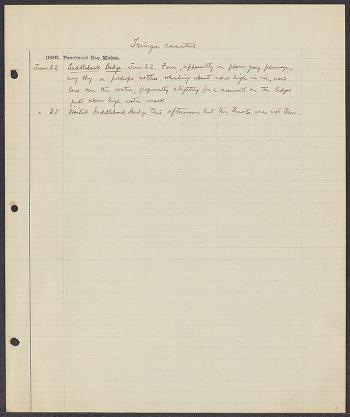 Tringa canutus.
1896. Penobscot Bay, Maine.
June 22 Saddleback Ledge. June 22. Four, apparently in plain gray plumage,
very shy & perhaps restless wheeling about now high in air, now
low over the water, frequently alighting for a moment on the ledges
just above high water mark.
" 25 Visited Saddleback Ledge this afternoon but the Knots were not there.